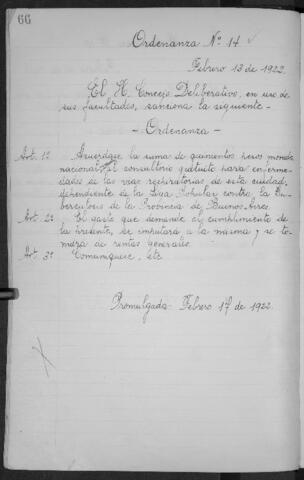 66
Ordenanza Nº 14
Febrero 13 de 1922.
El H. Concejo Deliberativo, en uso de
sus facultades, sanciona la siguiente -
- Ordenanza -
Art. 1º Acuérdase la suma de quinientos pesos moneda
nacional, al consultorio gratuito para enferme-
dades de las vias respiratorias de esta ciudad,
dependiente de la Liga Popular contra la Tu-
berculosis de la Provincia de Buenos Aires.
Art. 2º El gasto que demande el cumplimiento de
la presente, se imputará a la misma y se to-
mará de rentas generales.
Art. 3º Comuníquese, etc.
Promulgada - Febrero 17 de 1922.